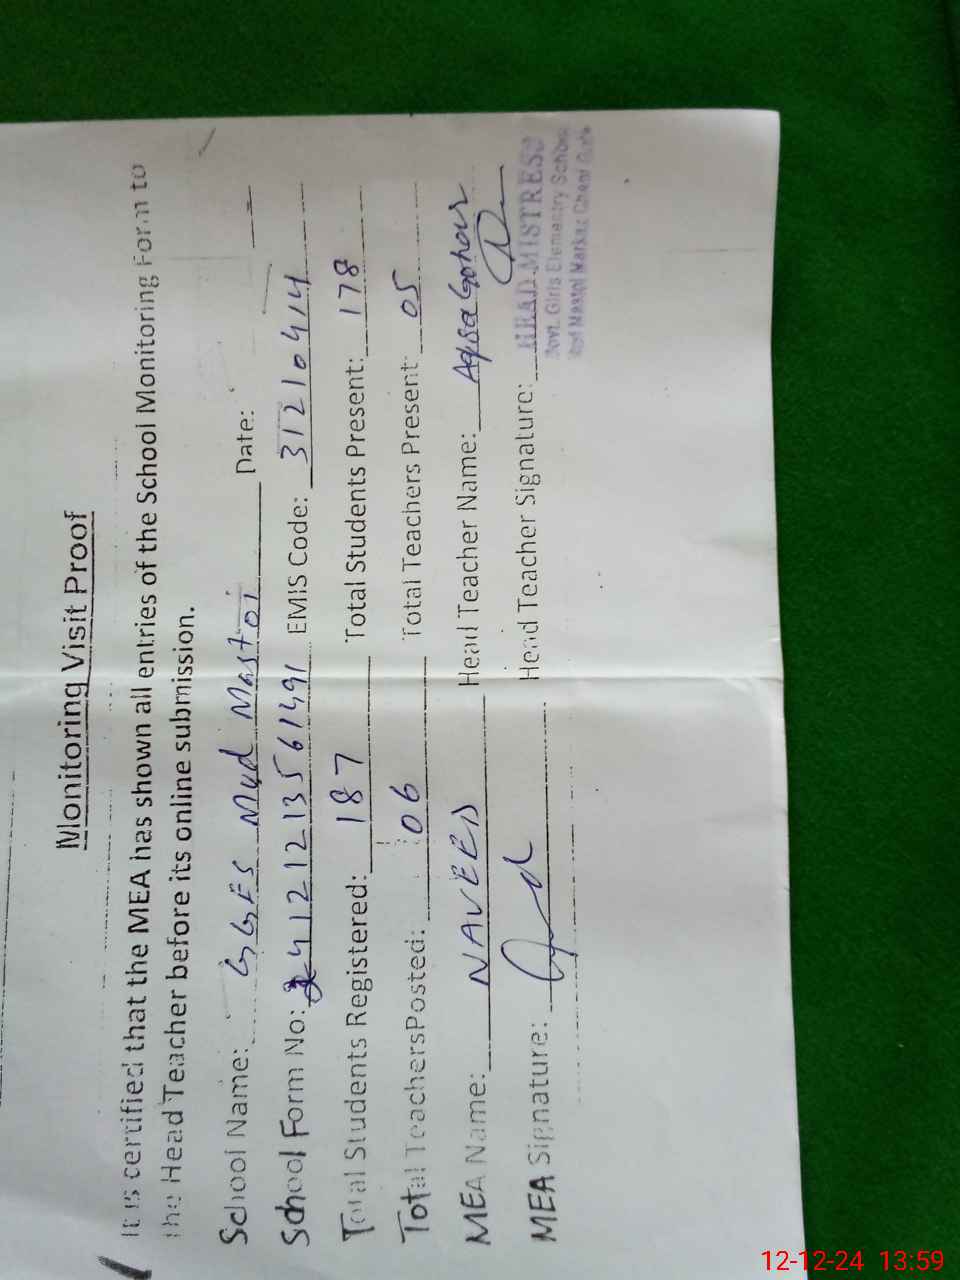 Monitoring Visit Proof
It is certified that the MEA has shown all entries of the School Monitoring Form to
the Head Teacher before its online submission.
School Name: GGES Mud Mastoi Date:
School Form No: 24121213561491 EMIS Code: 31210414
Total Students Registered: 187 Total Students Present: 178
Total TeachersPosted: 06 Total Teachers Present: 05
MEA Name: NAVEED Head Teacher Name: Aqsa Gohar
MEA Signature: Head Teacher Signature:
HEAD MISTRESS
Govt. Girls Elementry School
Markaz
12-12-24 13:59